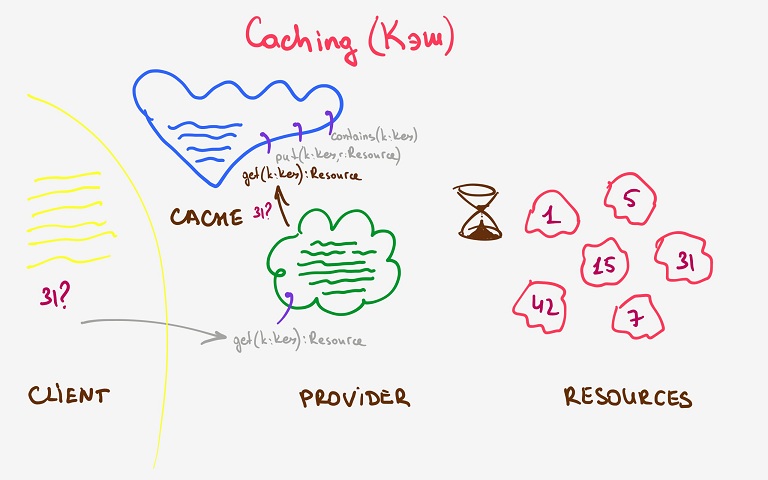 Caching (Кэш)
contains(k:Key)
put(k:Key, r:Resource)
get(k:Key):Resource
CACHE 31?
1
5
15
31
42
7
31?
get(k:Key):Resource
CLIENT
PROVIDER
RESOURCES